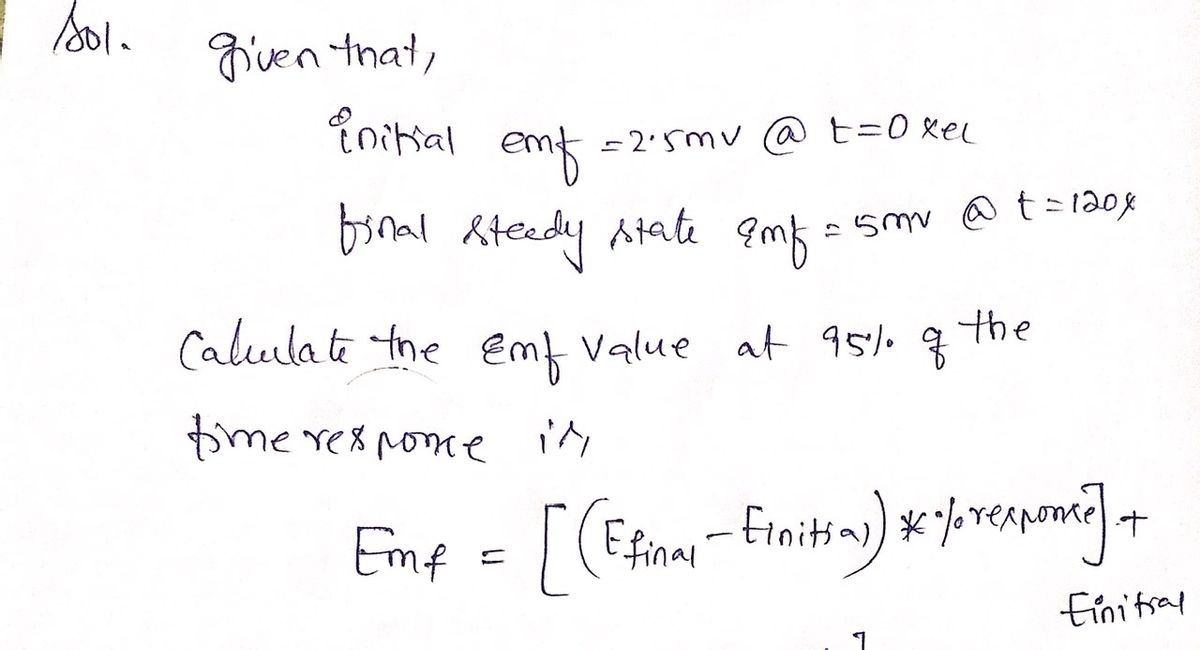 Sol.
given that,
initial emf = 2.5mv @ t=0 sec
final steady state Emf = 5mv @ t=120s
Calculate the Emf value at 95% of the
time responce is,
Emf = [(Efinal - Einitial) * % response] +
Einitial